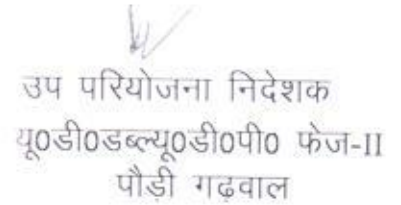 उप परियोजना निदेशक
यू0डी0डब्ल्यू0डी0पी0 फेज-II
पौड़ी गढ़वाल